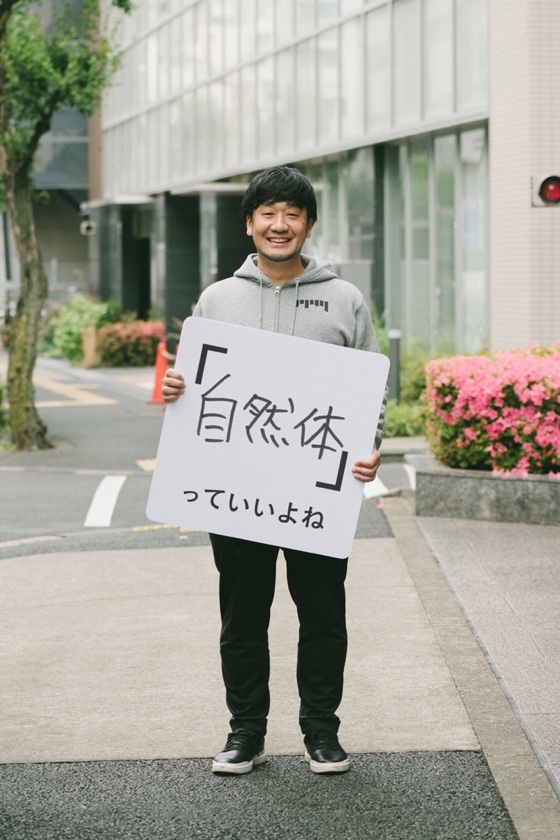 「自然体」
っていいよね